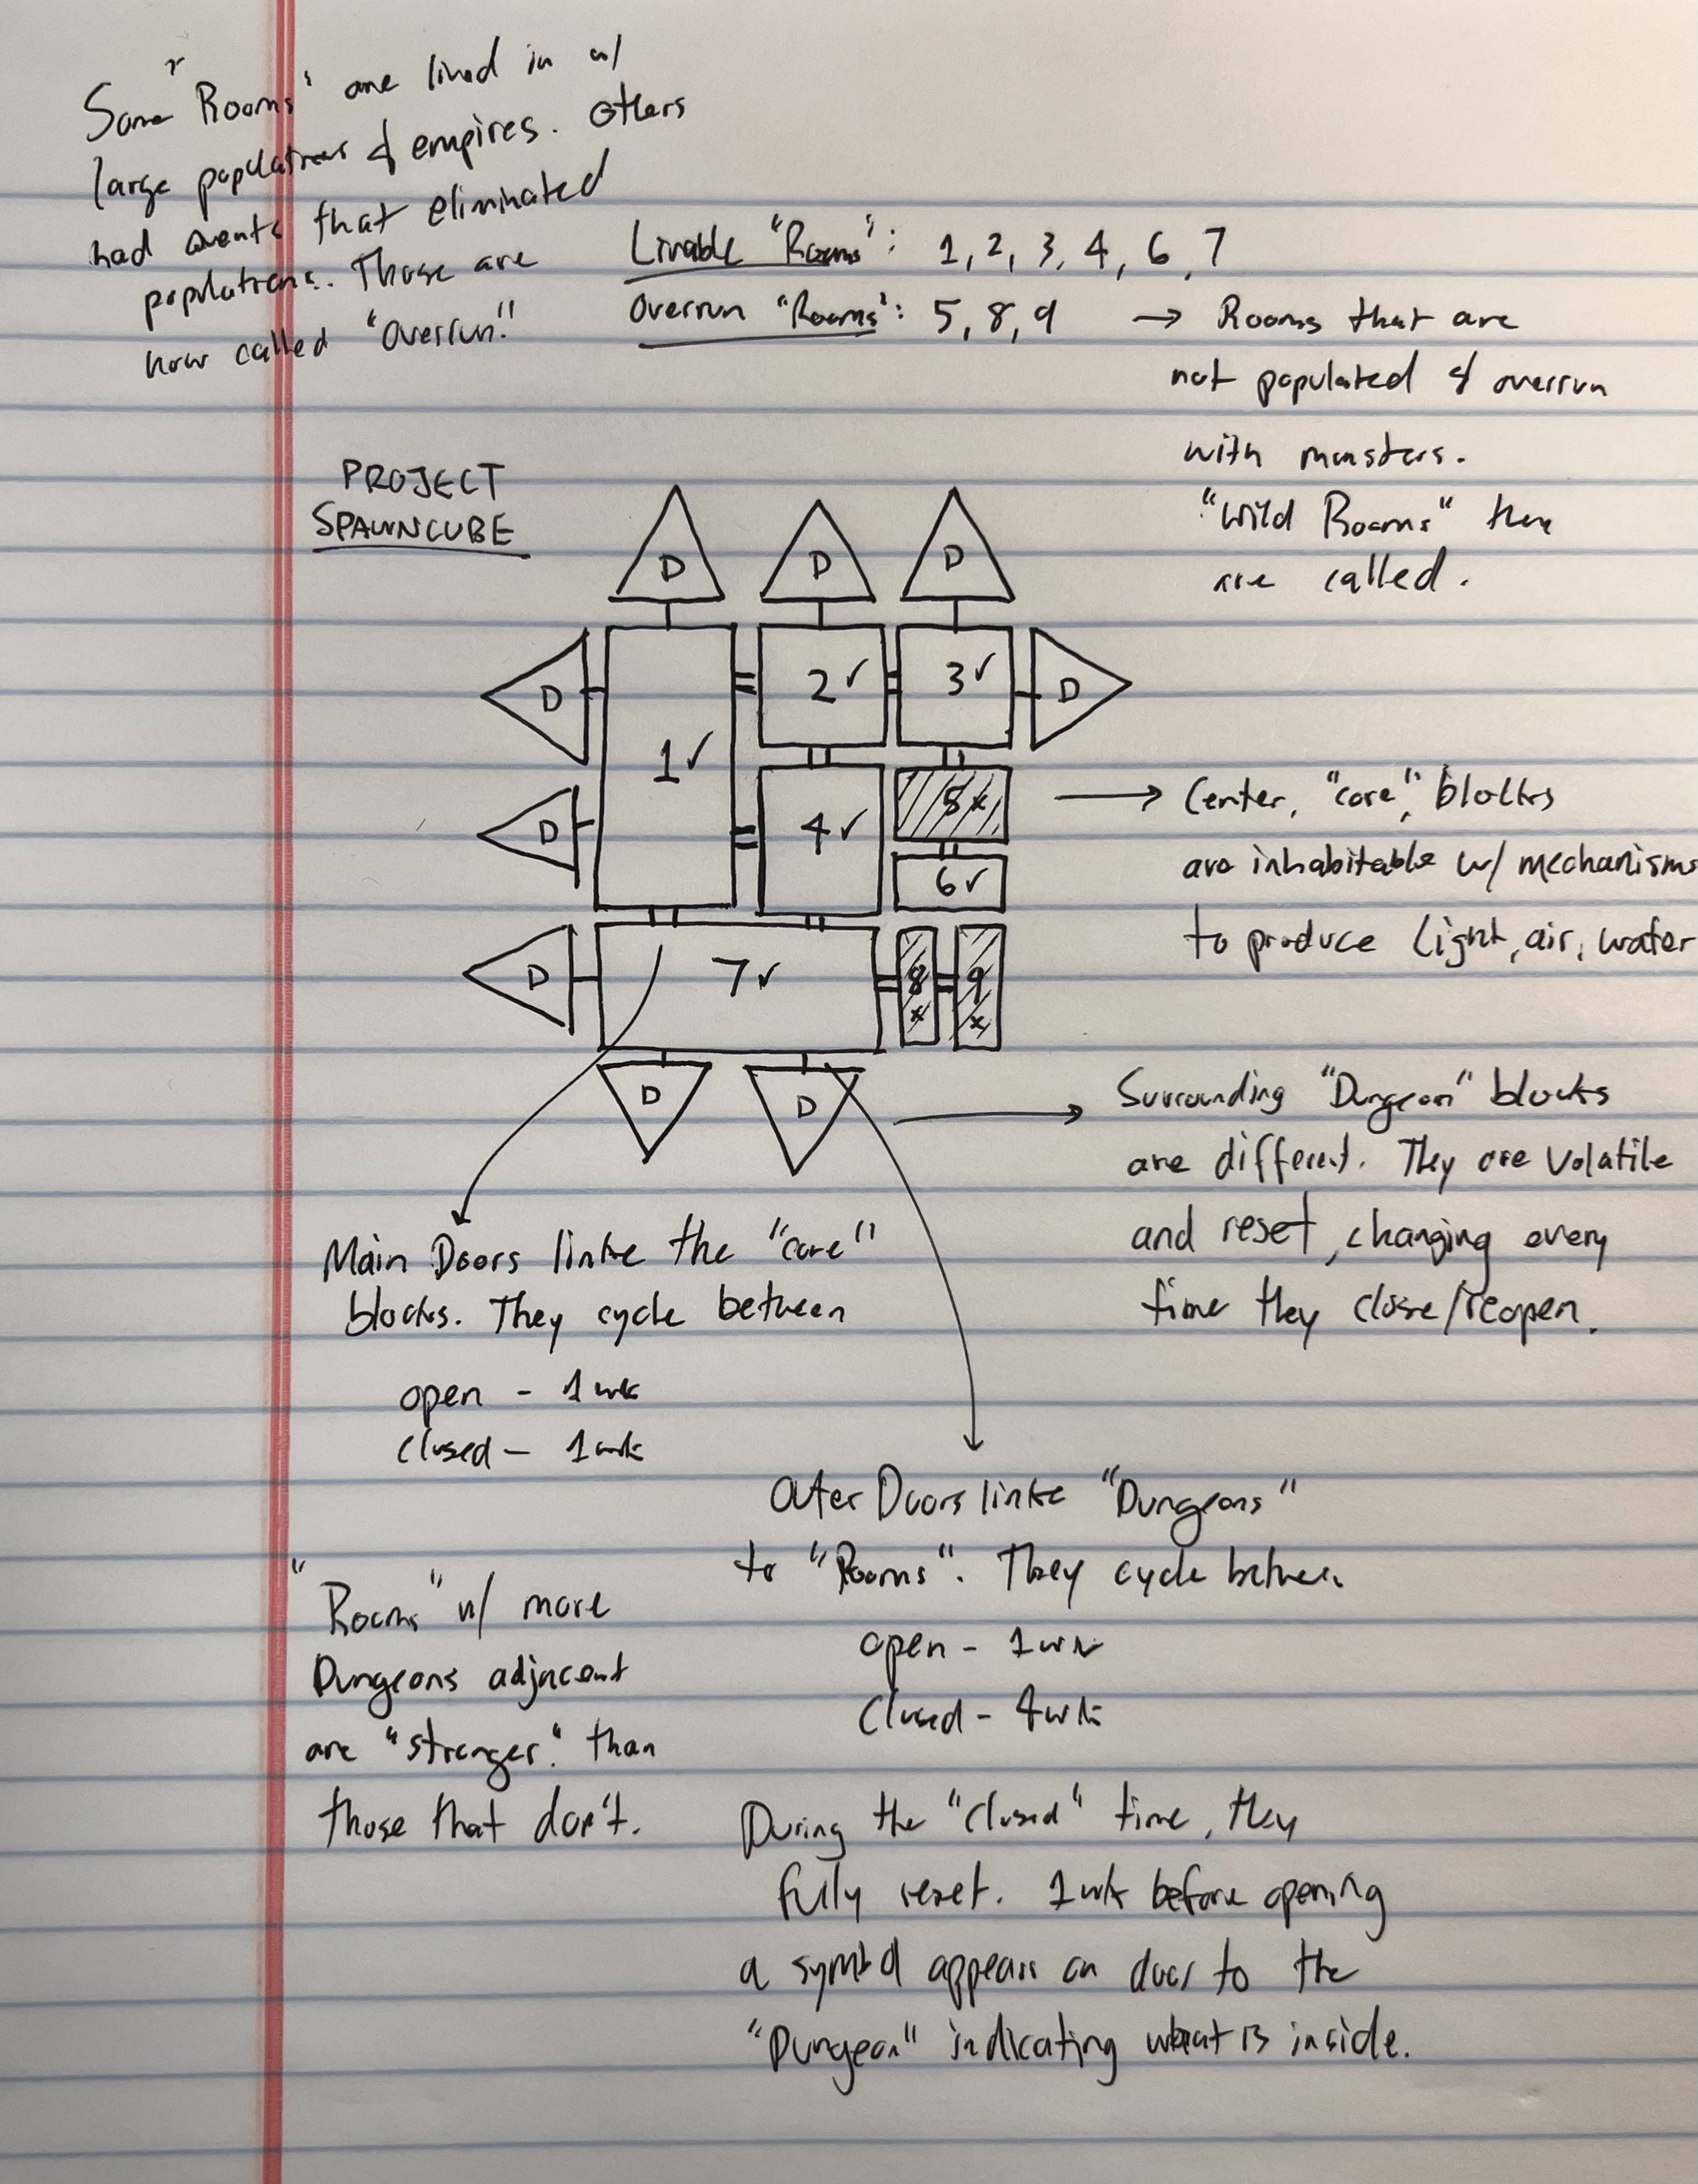 Some "Rooms" are lived in w/
large populations & empires. Others
had events that eliminated
populations. Those are
now called "Overrun."
Livable "Rooms": 1, 2, 3, 4, 6, 7
Overrun "Rooms": 5, 8, 9 → Rooms that are
not populated & overrun
with monsters.
"Wild Rooms" they
are called.
PROJECT
SPAWNCUBE
D D D
D 1✓ 2✓ 3✓ D
D 4✓ 5x
6✓
D 7✓ 8x 9x
D D
Center, "core", blocks
are inhabitable w/ mechanisms
to produce light, air, water
Surrounding "Dungeon" blocks
are different. They are volatile
and reset, changing every
time they close/reopen.
Main Doors link the "core"
blocks. They cycle between
open - 1 wk
closed - 1 wk
Outer Doors link "Dungeons"
to "Rooms". They cycle between
open - 1 wk
closed - 4 wk
During the "closed" time, they
fully reset. 1 wk before opening
a symbol appears on door to the
"Dungeon" indicating what is inside.
"Rooms" w/ more
Dungeons adjacent
are "stronger." than
those that don't.